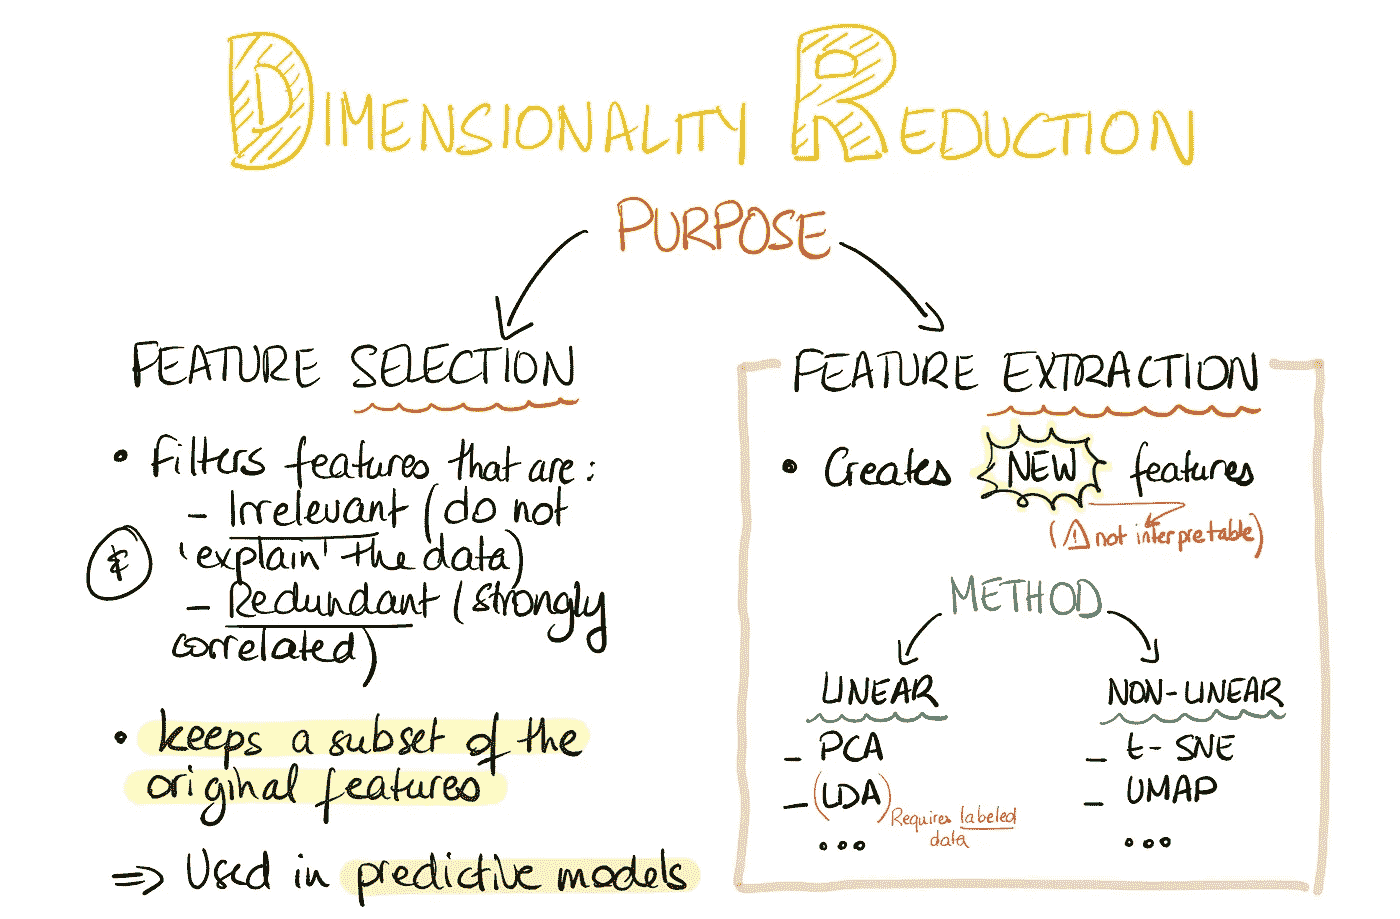 DIMENSIONALITY REDUCTION
PURPOSE
FEATURE SELECTION
• Filters features that are:
– Irrelevant (do not
& 'explain' the data)
– Redundant (strongly
correlated)
• keeps a subset of the
original features
⇒ Used in predictive models
FEATURE EXTRACTION
• Creates NEW features
(⚠ not interpretable)
METHOD
LINEAR
– PCA
– (LDA) Requires labeled
data
...
NON-LINEAR
– t-SNE
– UMAP
...